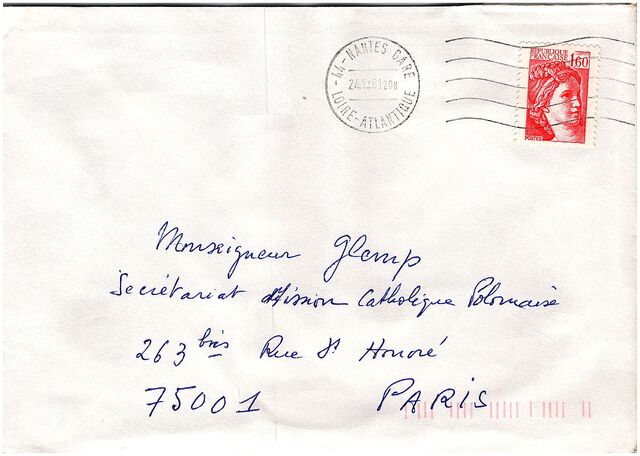 44-NANTES GARE
LOIRE-ATLANTIQUE
REPUBLIQUE
FRANÇAISE
1,60
POSTES
Monseigneur Glemp
Secrétariat Mission Catholique Polonaise
263 bis Rue St Honoré
75001 PARIS